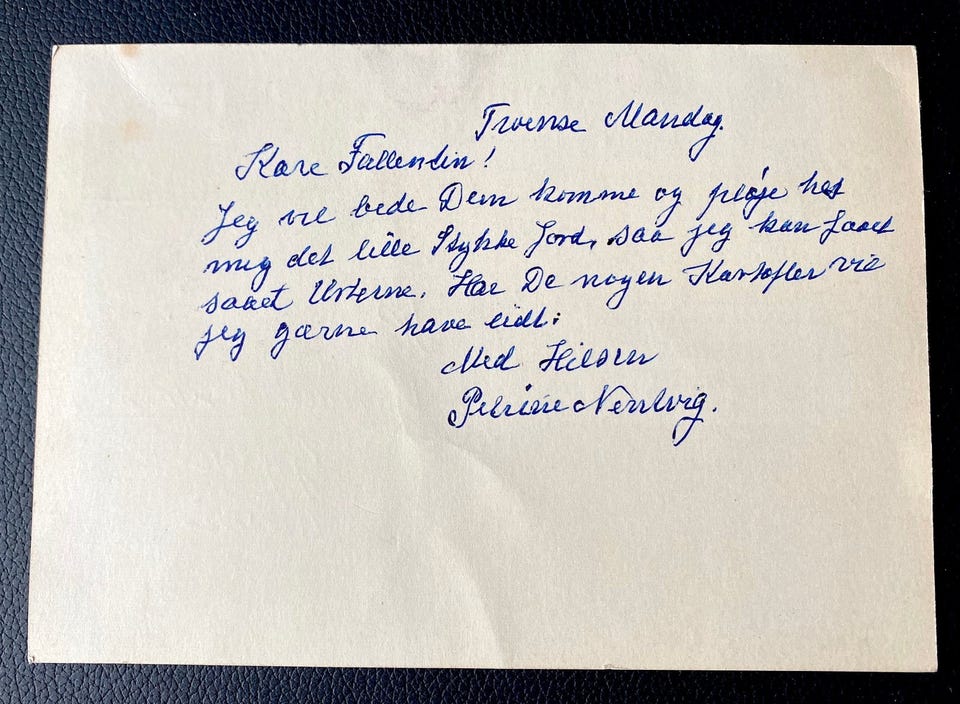 Troense Mandag.
Kære Fallentin!
Jeg vil bede Dem komme og pløje hos
mig det lille Stykke Jord, saa jeg kan faaet
saaet Urterne. Har De nogen Kartofler vil
jeg gærne have lidt:
Med Hilsen
Petrine